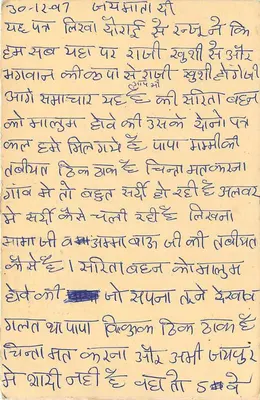 30-12-97 जय माता दी
यह पत्र लिखा से रन्जू ने कि
हम सब यहा पर राजी खुशी से और
भगवान की कृपा से राजी खुशी होगे जी
आगे समाचार यह है की सरिता बहन
को मालुम होवे की उसके दोनो पत्र
कल हमे मिल गये है पापा मम्मी की
तबीयत ठिक ठाक है चिन्ता मत करना
गांव मे तो बहुत सर्दी हो रही है अलवर
मे सर्दी कैसे चली रही है लिखना
मामा जी व अम्मा बाऊ जी की तबीयत
कैसे है । सरिता बहन को मालुम
होवे की जो सपना तुने देखा व
गलत था पापा बिल्कुल ठिक ठाक है
चिन्ता मत करना और अभी जयपुर
मे शादी नही है वह तो 5 वे